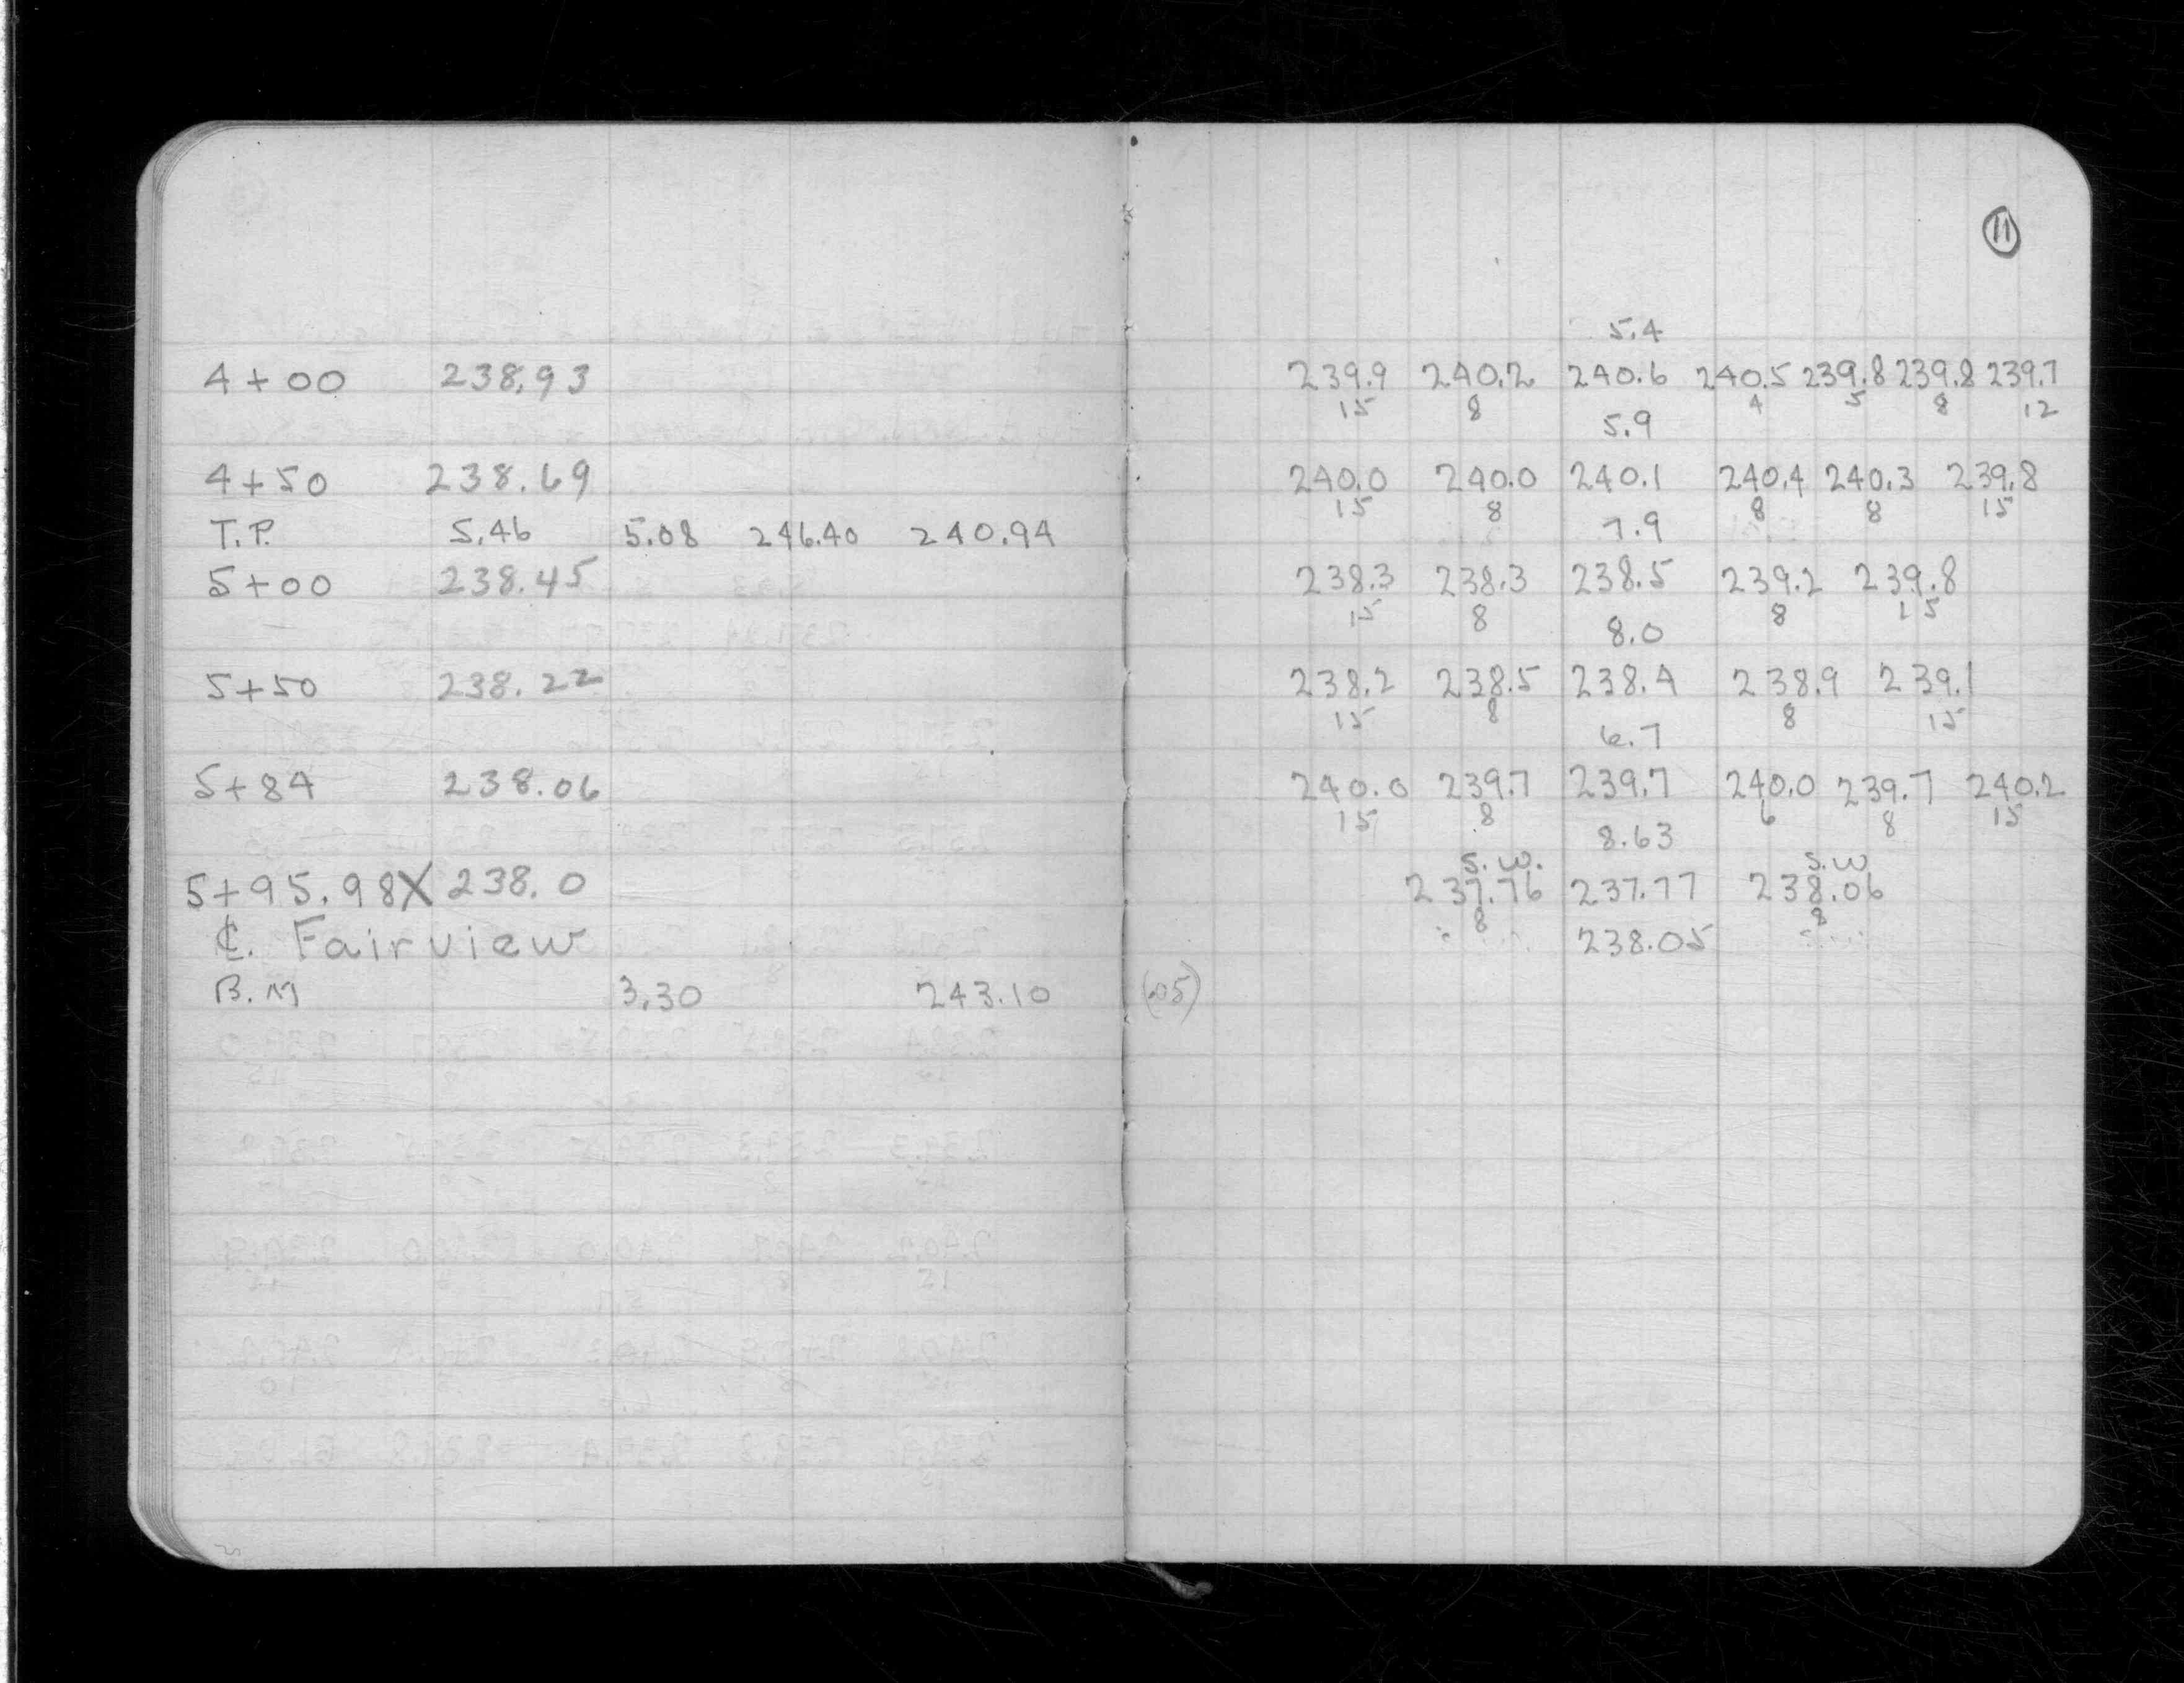 11
4+00 238.93
4+50 238.69
T.P. 5.46 5.08 246.40 240.94
5+00 238.45
5+50 238.22
5+84 238.06
5+95.98X 238.0
℄. Fairview
B.M 3.30 243.10
5.4
239.9 240.2 240.6 240.5 239.8 239.8 239.7
15 8 4 5 8 12
5.9
240.0 240.0 240.1 240.4 240.3 239.8
15 8 8 8 15
7.9
238.3 238.3 238.5 239.2 239.8
15 8 8 15
8.0
238.2 238.5 238.4 238.9 239.1
15 8 8 15
6.7
240.0 239.7 239.7 240.0 239.7 240.2
15 8 6 8 15
8.63
S.W. S.W
237.76 237.77 238.06
8 8
238.05
(.05)